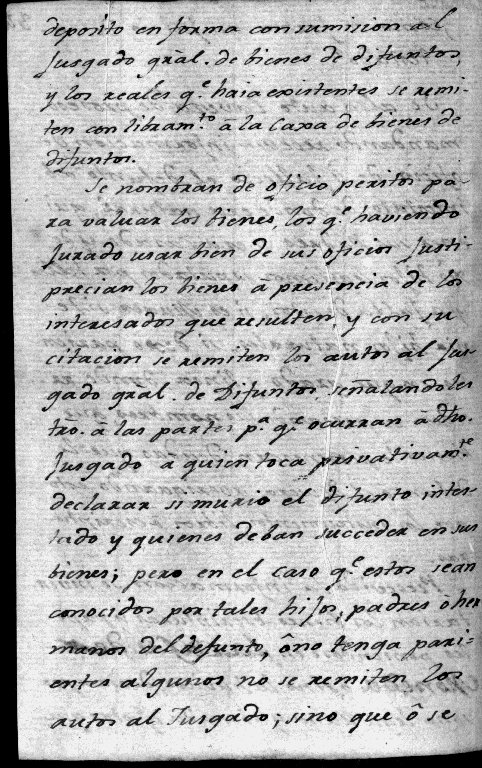 deposito en forma con sumision al
Jusgado grāl. de bienes de difuntos,
y los reales q.e haia existentes se remi-
ten con libram.to â la Caxa de bienes de
difuntos.
Se nombran de oficio peritos pa-
ra valuar los bienes, los q.e haviendo
Jurado usar bien de sus oficios Justi-
precian los bienes â presencia de los
interesados que resulten, y con su
citacion se remiten los autos al Jus-
gado grāl. de Difuntos, señalandoles
tr̃o. â las partes p.a q.e ocurran â dh̃o.
Jusgado a quien toca privativam.te
declarar si murio el difunto intes-
tado y quienes deban succeder en sus
bienes; pero en el caso q.e estos sean
conocidos por tales hijos, padres ô her
manos del defunto, ô no tenga pari-
entes algunos no se remiten los
autos al Jusgado; sino que ô se